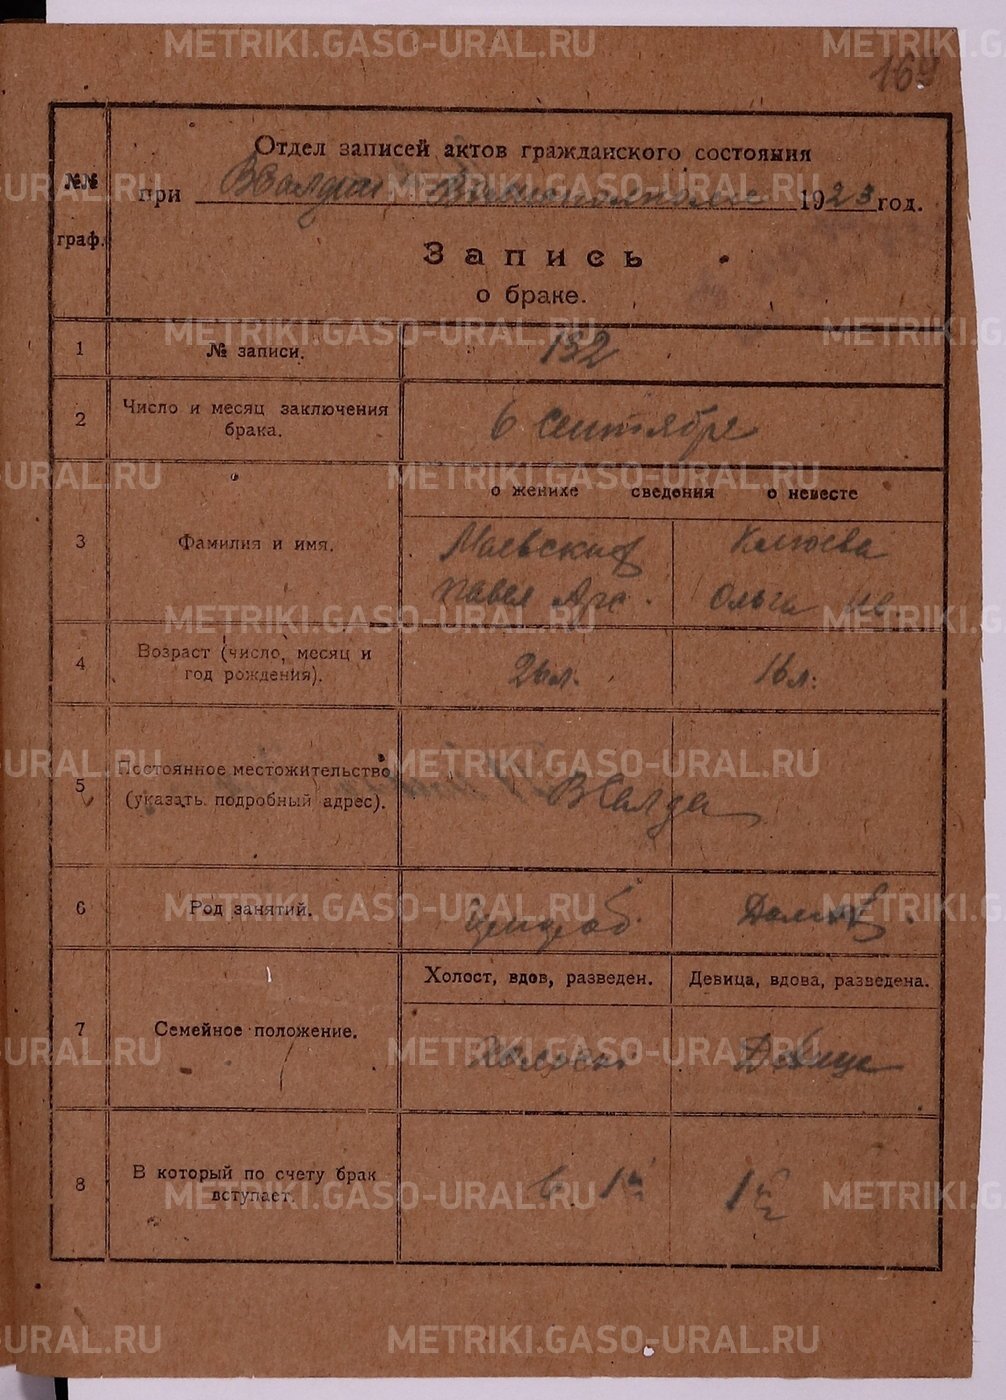 METRIKI.GASO-URAL.RU
169
Отдел записей актов гражданского состояния
№№ граф.
при ВСалдин. 1923 год.
Запись
о браке.
1 № записи. 132
2 Число и месяц заключения брака. 6 сентября
о женихе сведения о невесте
3 Фамилия и имя.
Маевский Клюева
Павел Арс. Ольга Ив.
4 Возраст (число, месяц и год рождения). 26 л. 16 л.
5 Постоянное местожительство (указать подробный адрес). ВСалда
6 Род занятий. Домов.
Холост, вдов, разведен. Девица, вдова, разведена.
7 Семейное положение. Холост Девица
8 В который по счету брак вступает. в 1й 1й